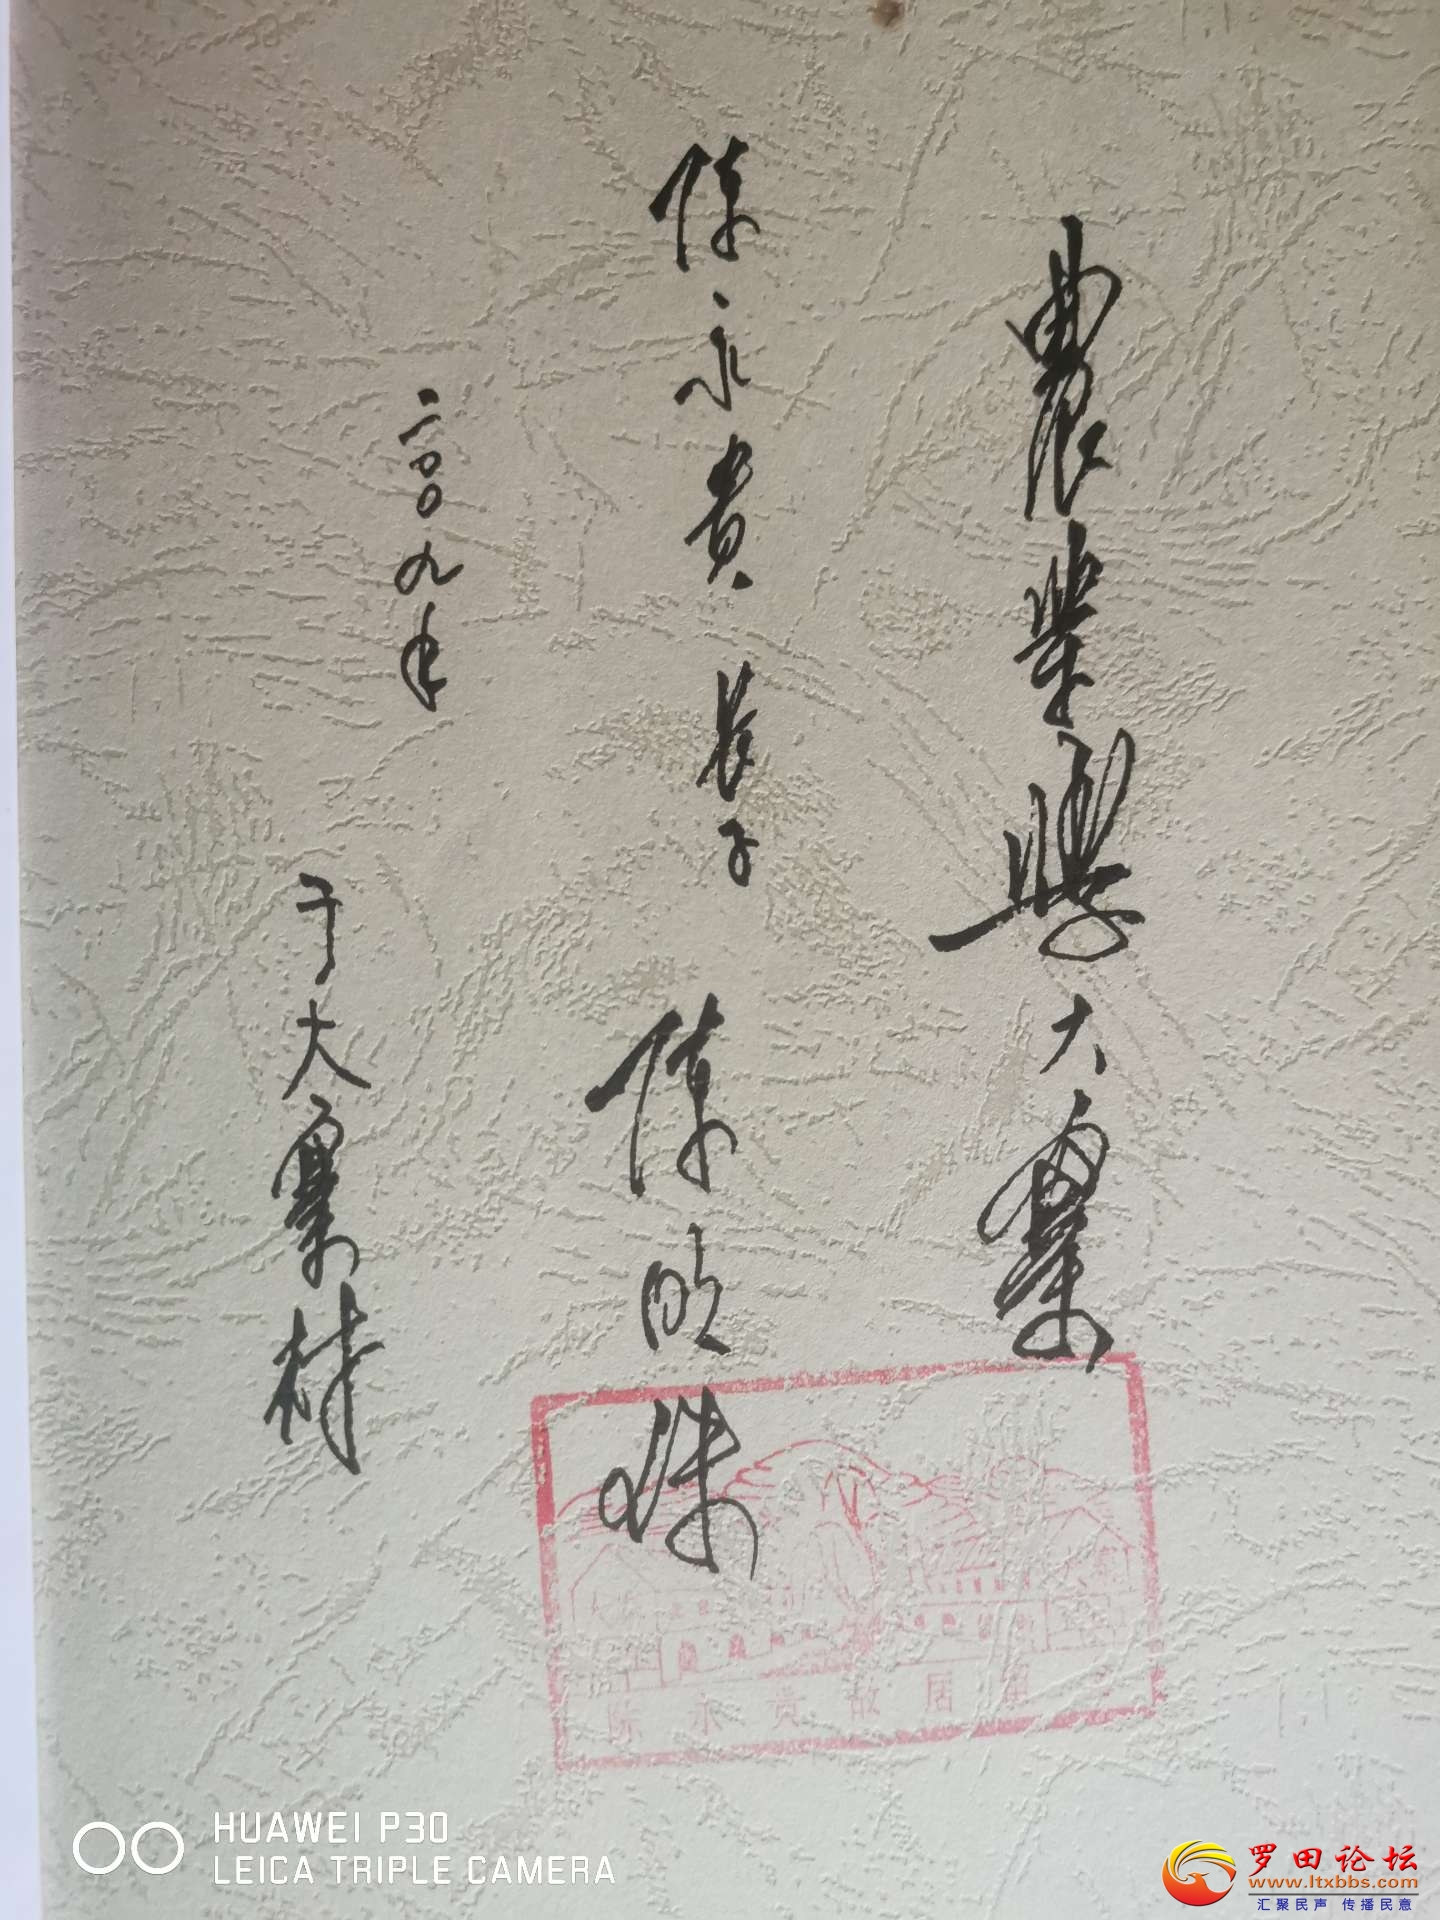 農業學大寨
陳永貴長子 陳明珠
二〇〇九年
于大寨村
陈永贵故居
HUAWEI P30
LEICA TRIPLE CAMERA
罗田论坛
www.ltxbbs.com
汇聚民声 传播民意